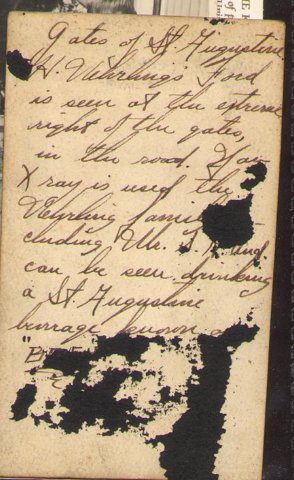 Gates of St. Augustine.
H. Nehrling's Ford
is seen at the extreme
right of the gates,
in the road. If an
X ray is used the
Nehrling fami
cluding Mr.
can be seen drinking
a St. Augustine
known